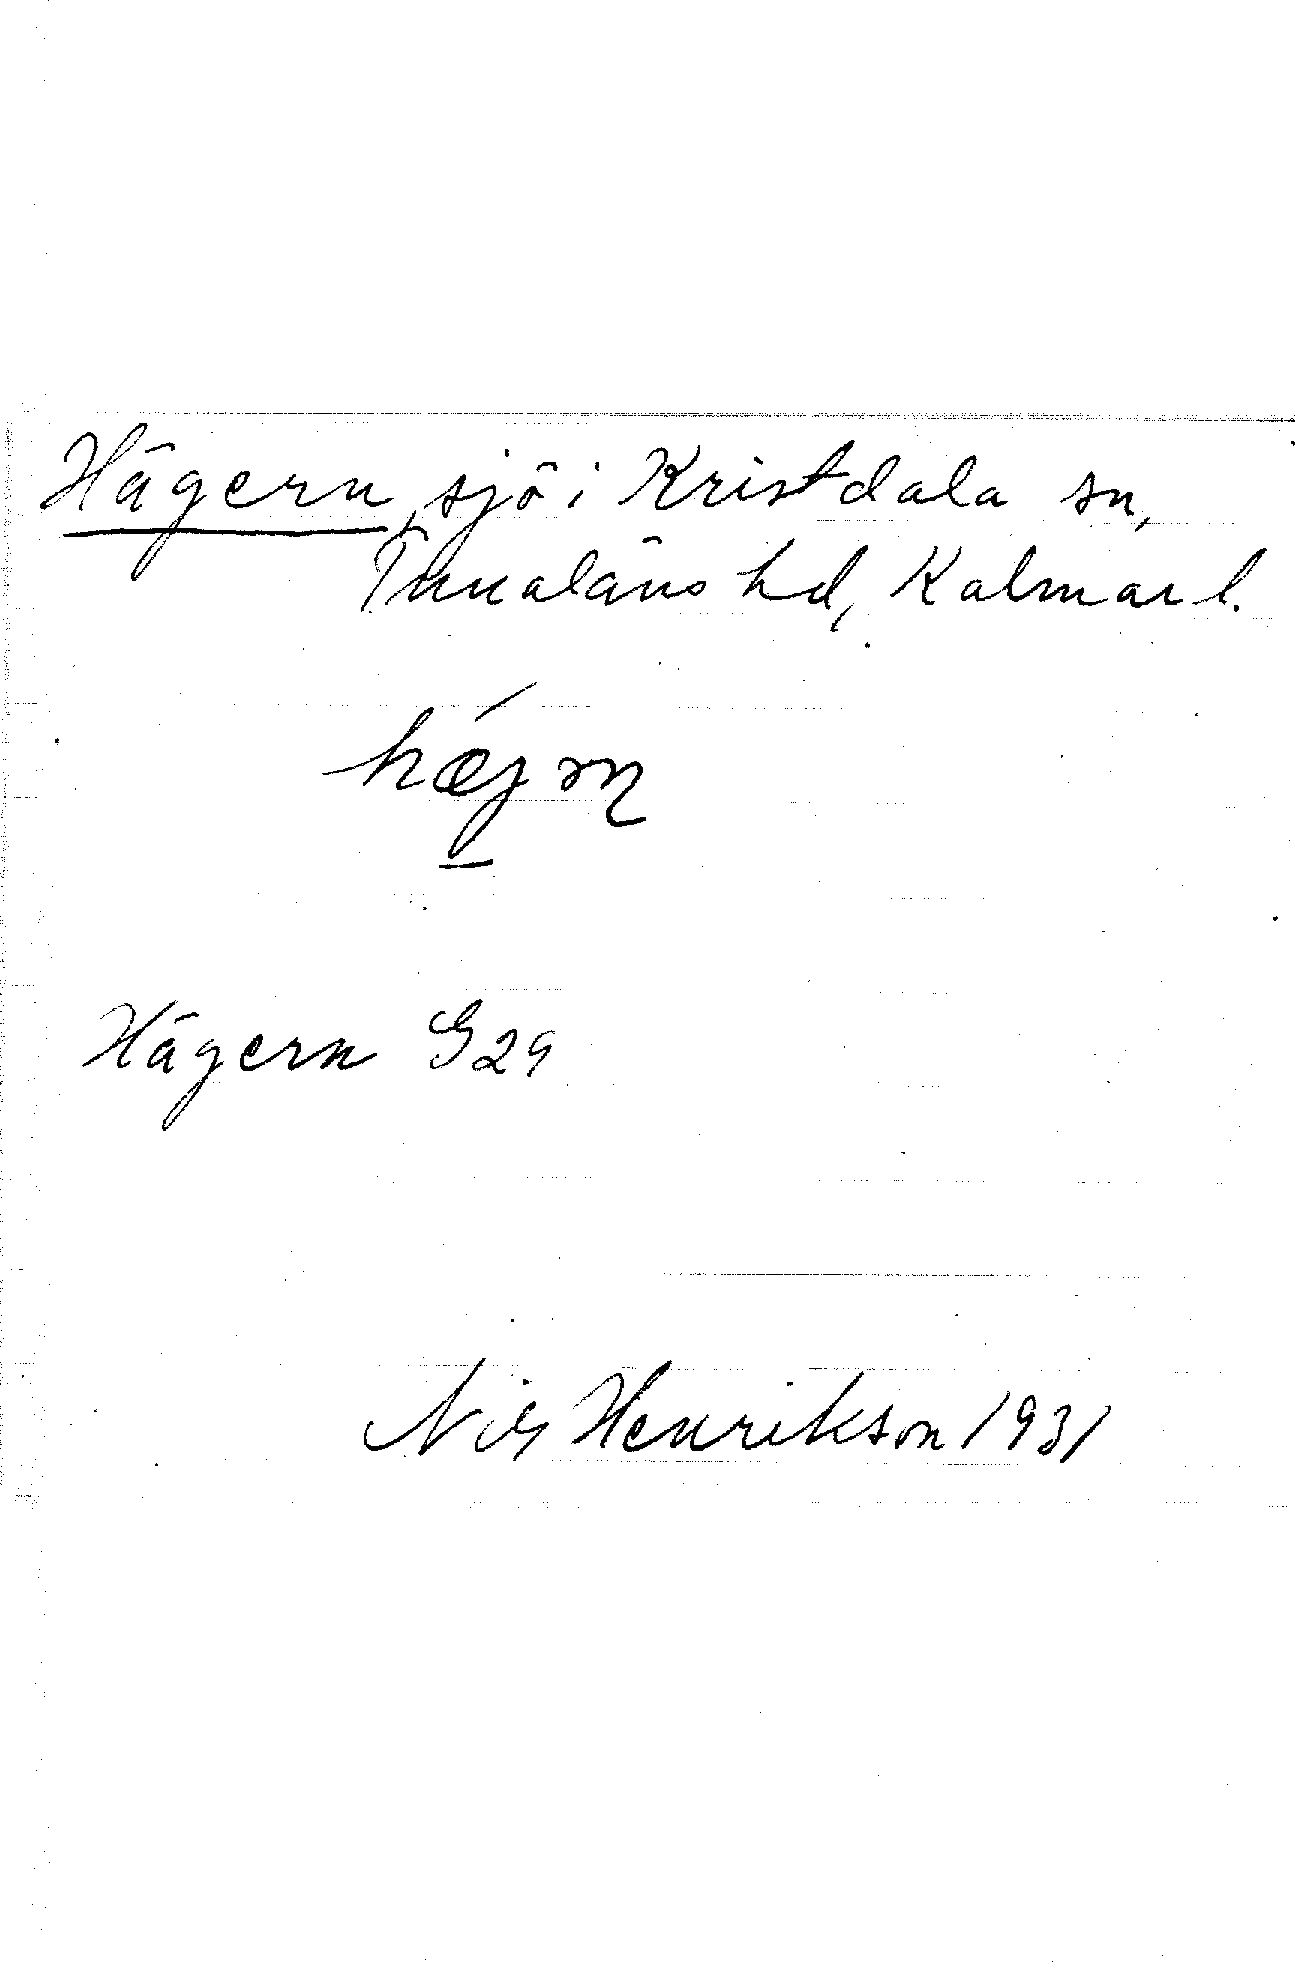 Hägern, sjö i Kristdala sn,
Tunaläns hd, Kalmar l.
Hägern G29
Nils Henrikson 1931